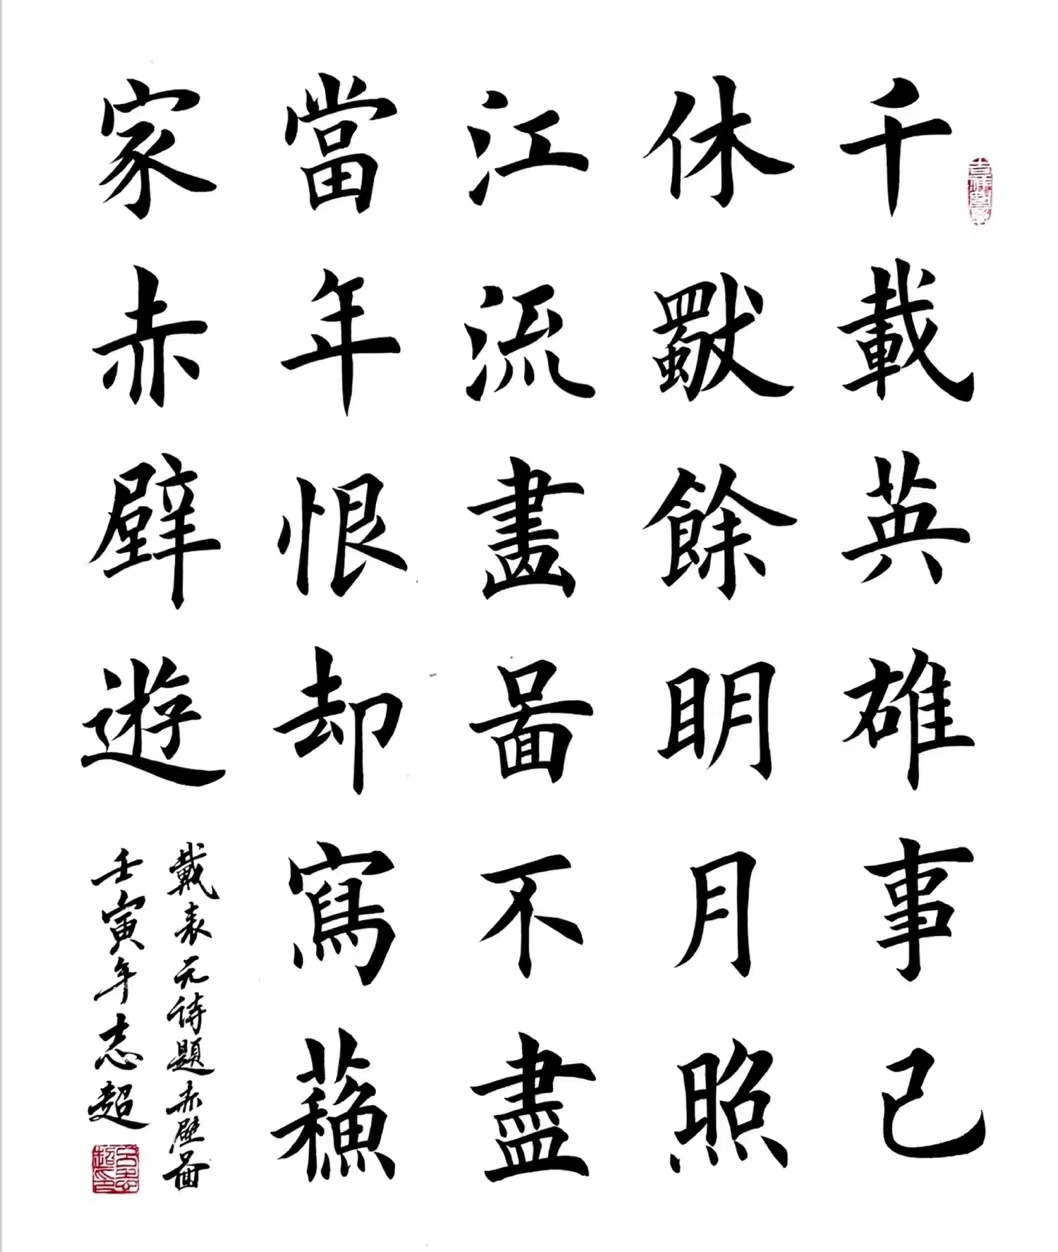 千載英雄事已
休獨餘明月照
江流畫啚不盡
當年恨却寫蘓
家赤壁遊
戴表元詩題赤壁啚
壬寅年志超